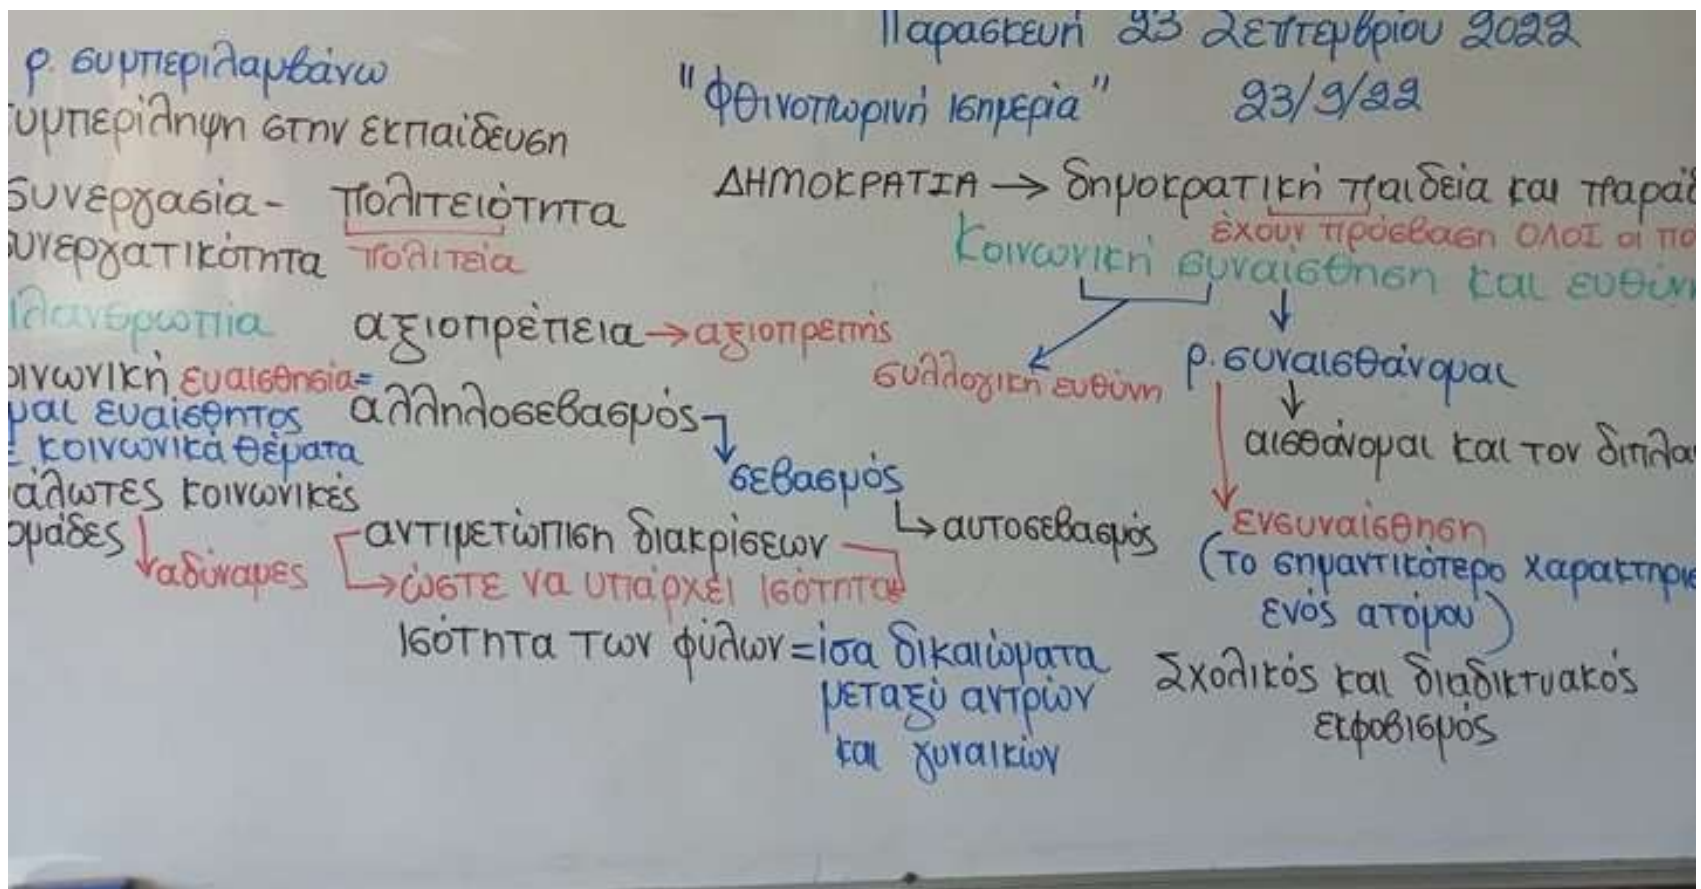 Παρασκευή 23 Σεπτεμβρίου 2022
"Φθινοπωρινή ισημερία" 23/9/22
ρ. συμπεριλαμβάνω
υμπερίληψη στην εκπαίδευση
Συνεργασία - πολιτειότητα
υνεργατικότητα πολιτεία
ιλανθρωπία
αξιοπρέπεια → αξιοπρεπής
οινωνική ευαισθησία=
μαι ευαίσθητος
κοινωνικά θέματα
άλωτες κοινωνικές
ομάδες
αδύναμες
αλληλοσεβασμός
σεβασμός
αυτοσεβασμός
αντιμετώπιση διακρίσεων
→ ώστε να υπάρχει ισότητα
Ισότητα των φύλων = ίσα δικαιώματα
μεταξύ αντρών
και γυναικών
ΔΗΜΟΚΡΑΤΙΑ → δημοκρατική παιδεία και παράδ
έχουν πρόσβαση ΟΛΟΙ οι πο
Κοινωνική συναίσθηση και ευθύν
συλλογική ευθύνη
ρ. συναισθάνομαι
αισθάνομαι και τον διπλα
ενσυναίσθηση
(το σημαντικότερο χαρακτηρισ
ενός ατόμου)
Σχολικός και διαδικτυακός
εκφοβισμός